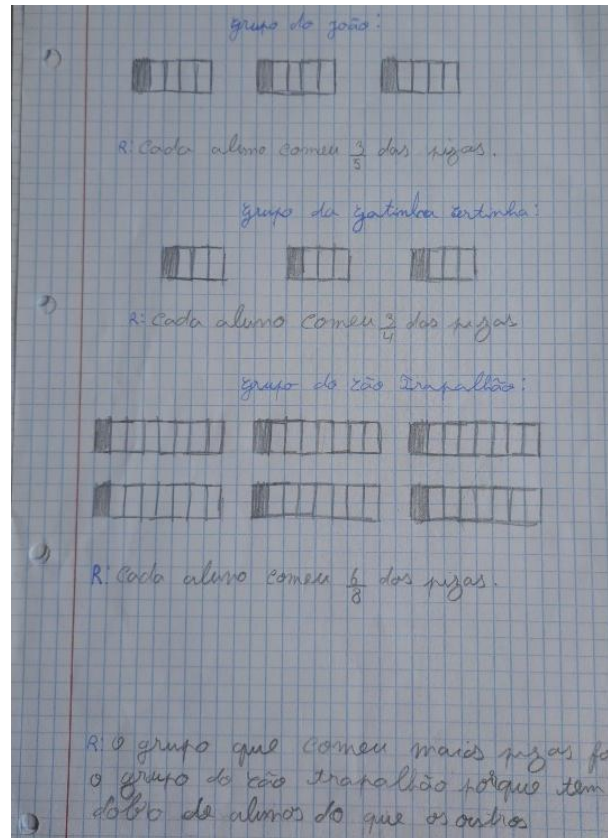 grupo do joão:
1)
R: Cada aluno comeu 3/5 das pizas.
grupo da gatinha tertinha:
2)
R: Cada aluno comeu 3/4 das pizas
grupo do cão Trapalhão:
3)
R: Cada aluno comeu 6/8 das pizas.
R: O grupo que comeu mais pizas fo
o grupo do cão trapalhão porque tem
dobro de alunos do que os outros